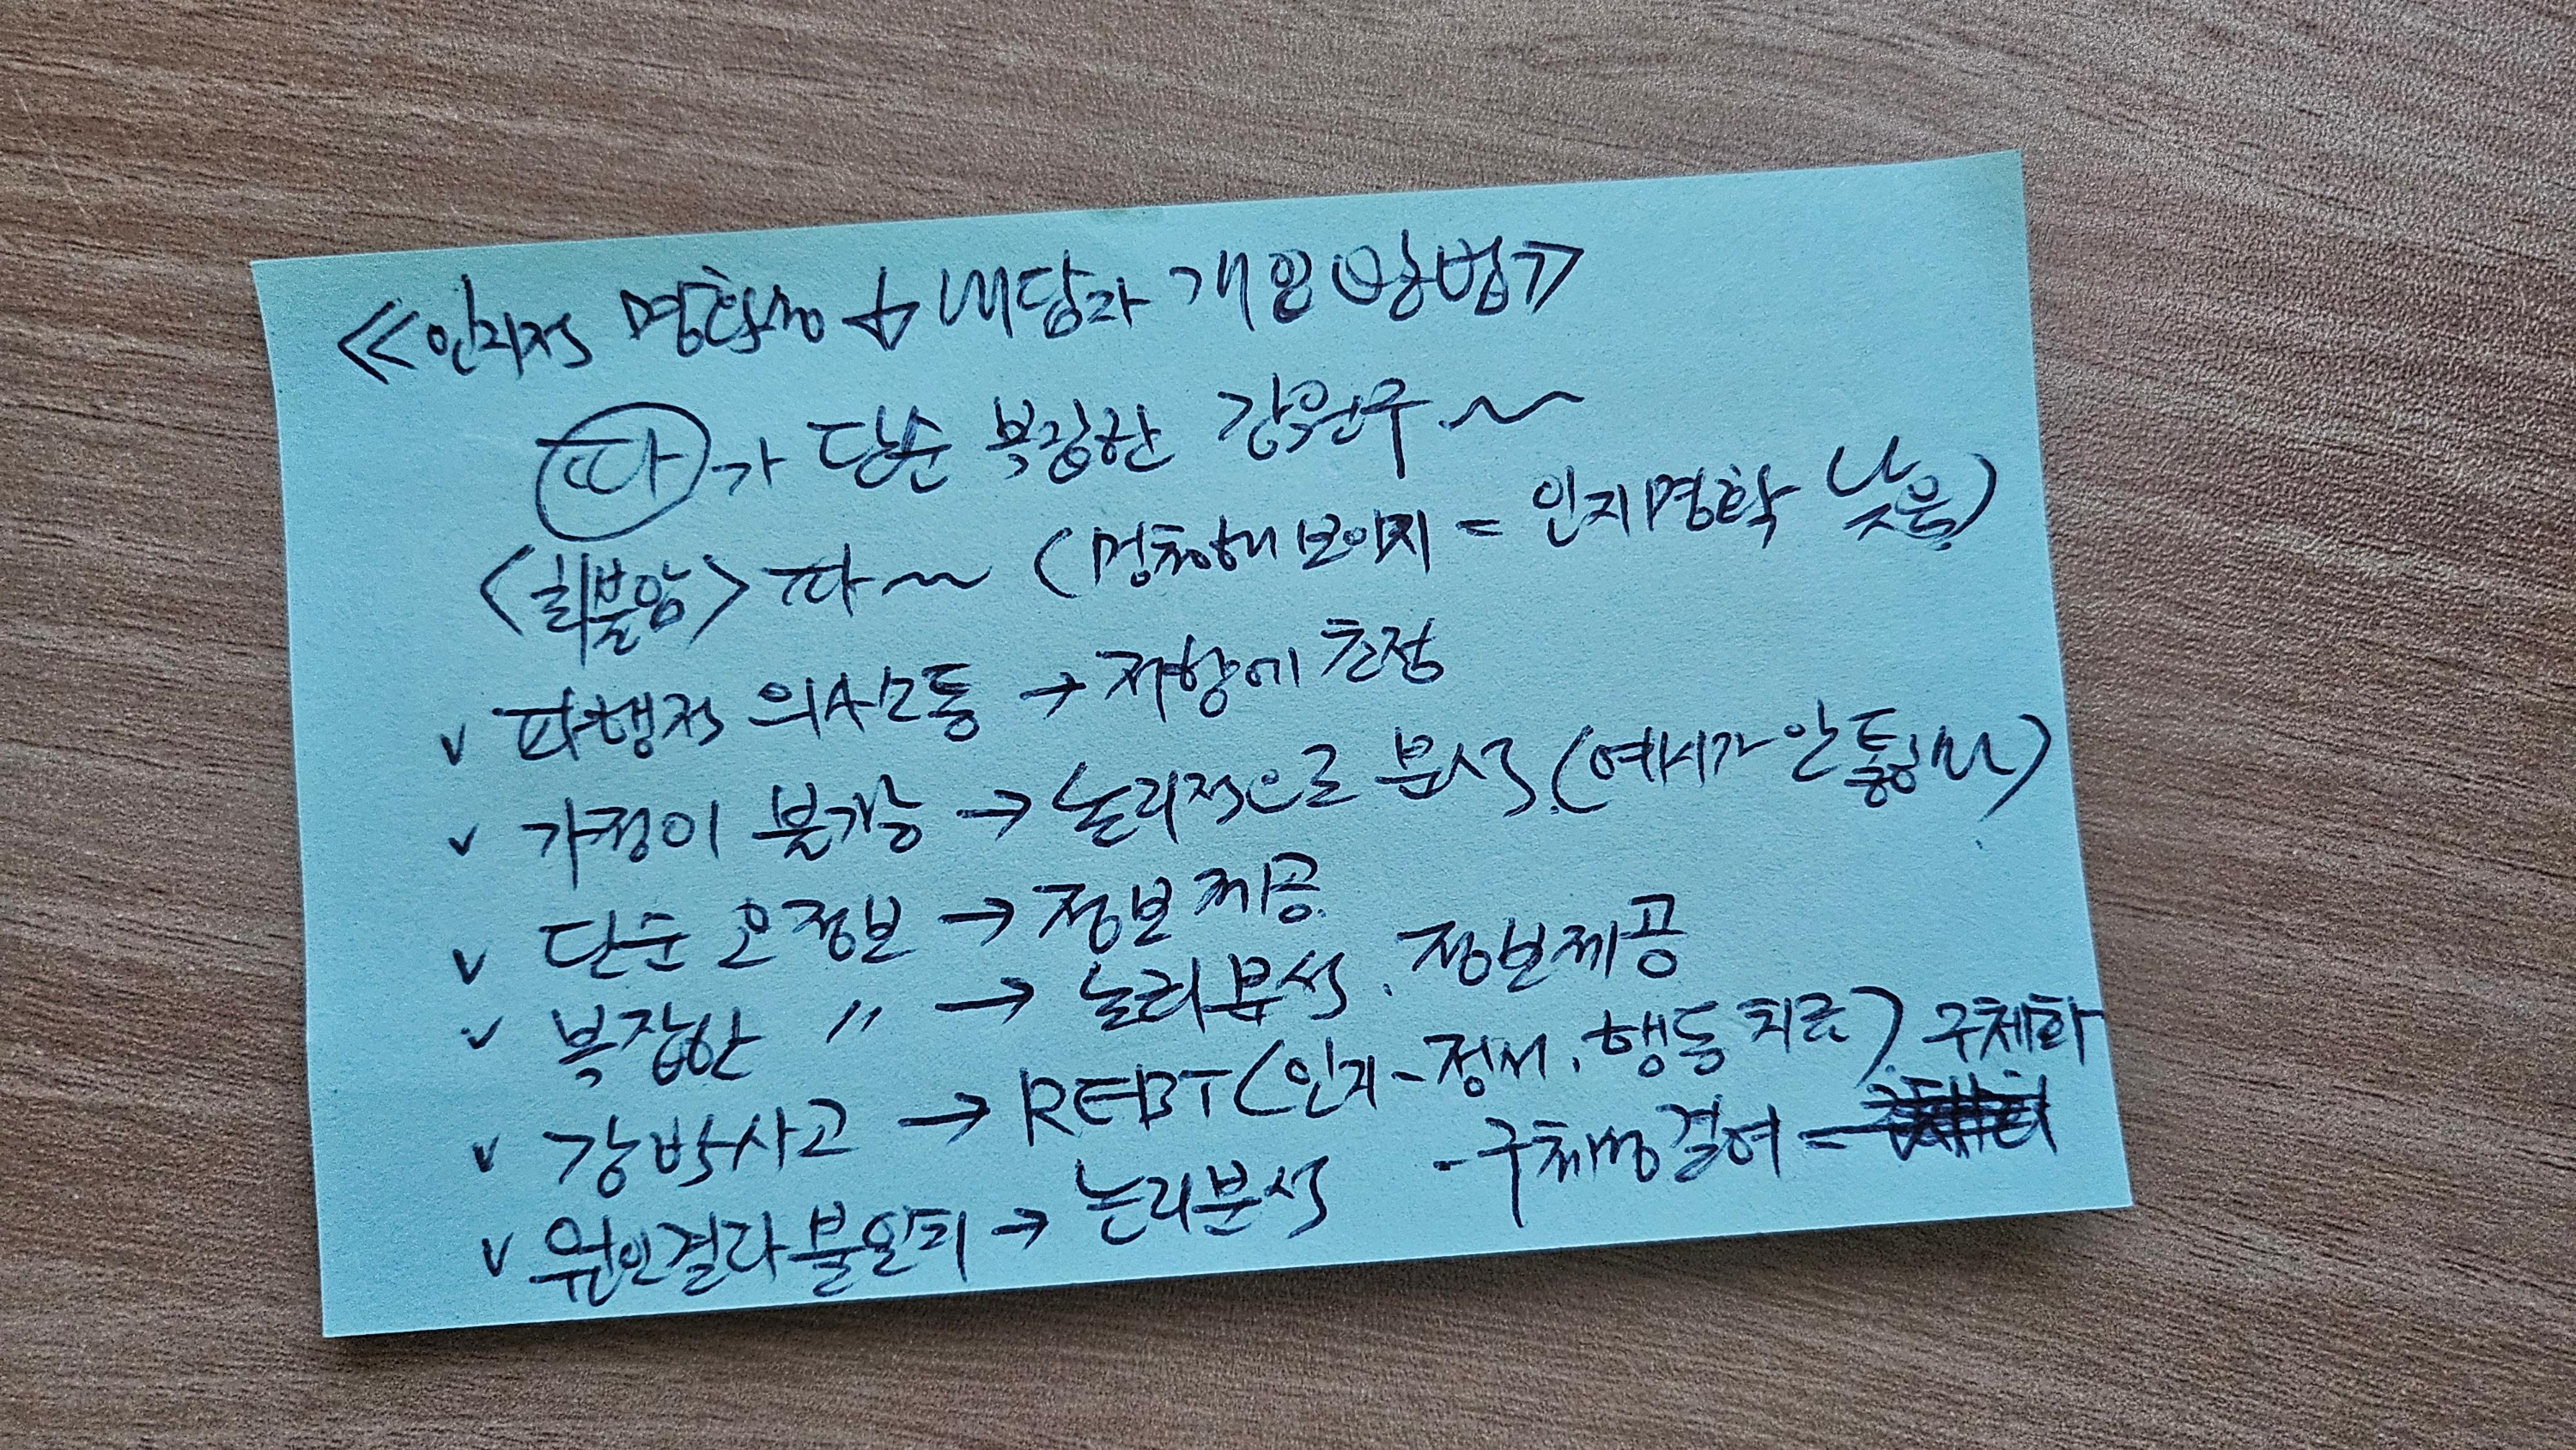 ≪인지적 명확성 ↓ 내담자 개입 방법≫
파가 단순 복잡한 강원구~
<최불암> 파~ (멍청해 보이지 = 인지명확 낮음)
∨ 파행적 의사소통 → 저항에 초점
∨ 가정이 불가능 → 논리적으로 분석 (예시가 안통함)
∨ 단순 오정보 → 정보제공.
∨ 복잡한 〃 → 논리분석. 정보제공
∨ 강박사고 → REBT(인지-정서.행동치료) 구체화
∨ 원인결과 불일치 → 논리분석 - 구체성결여 =